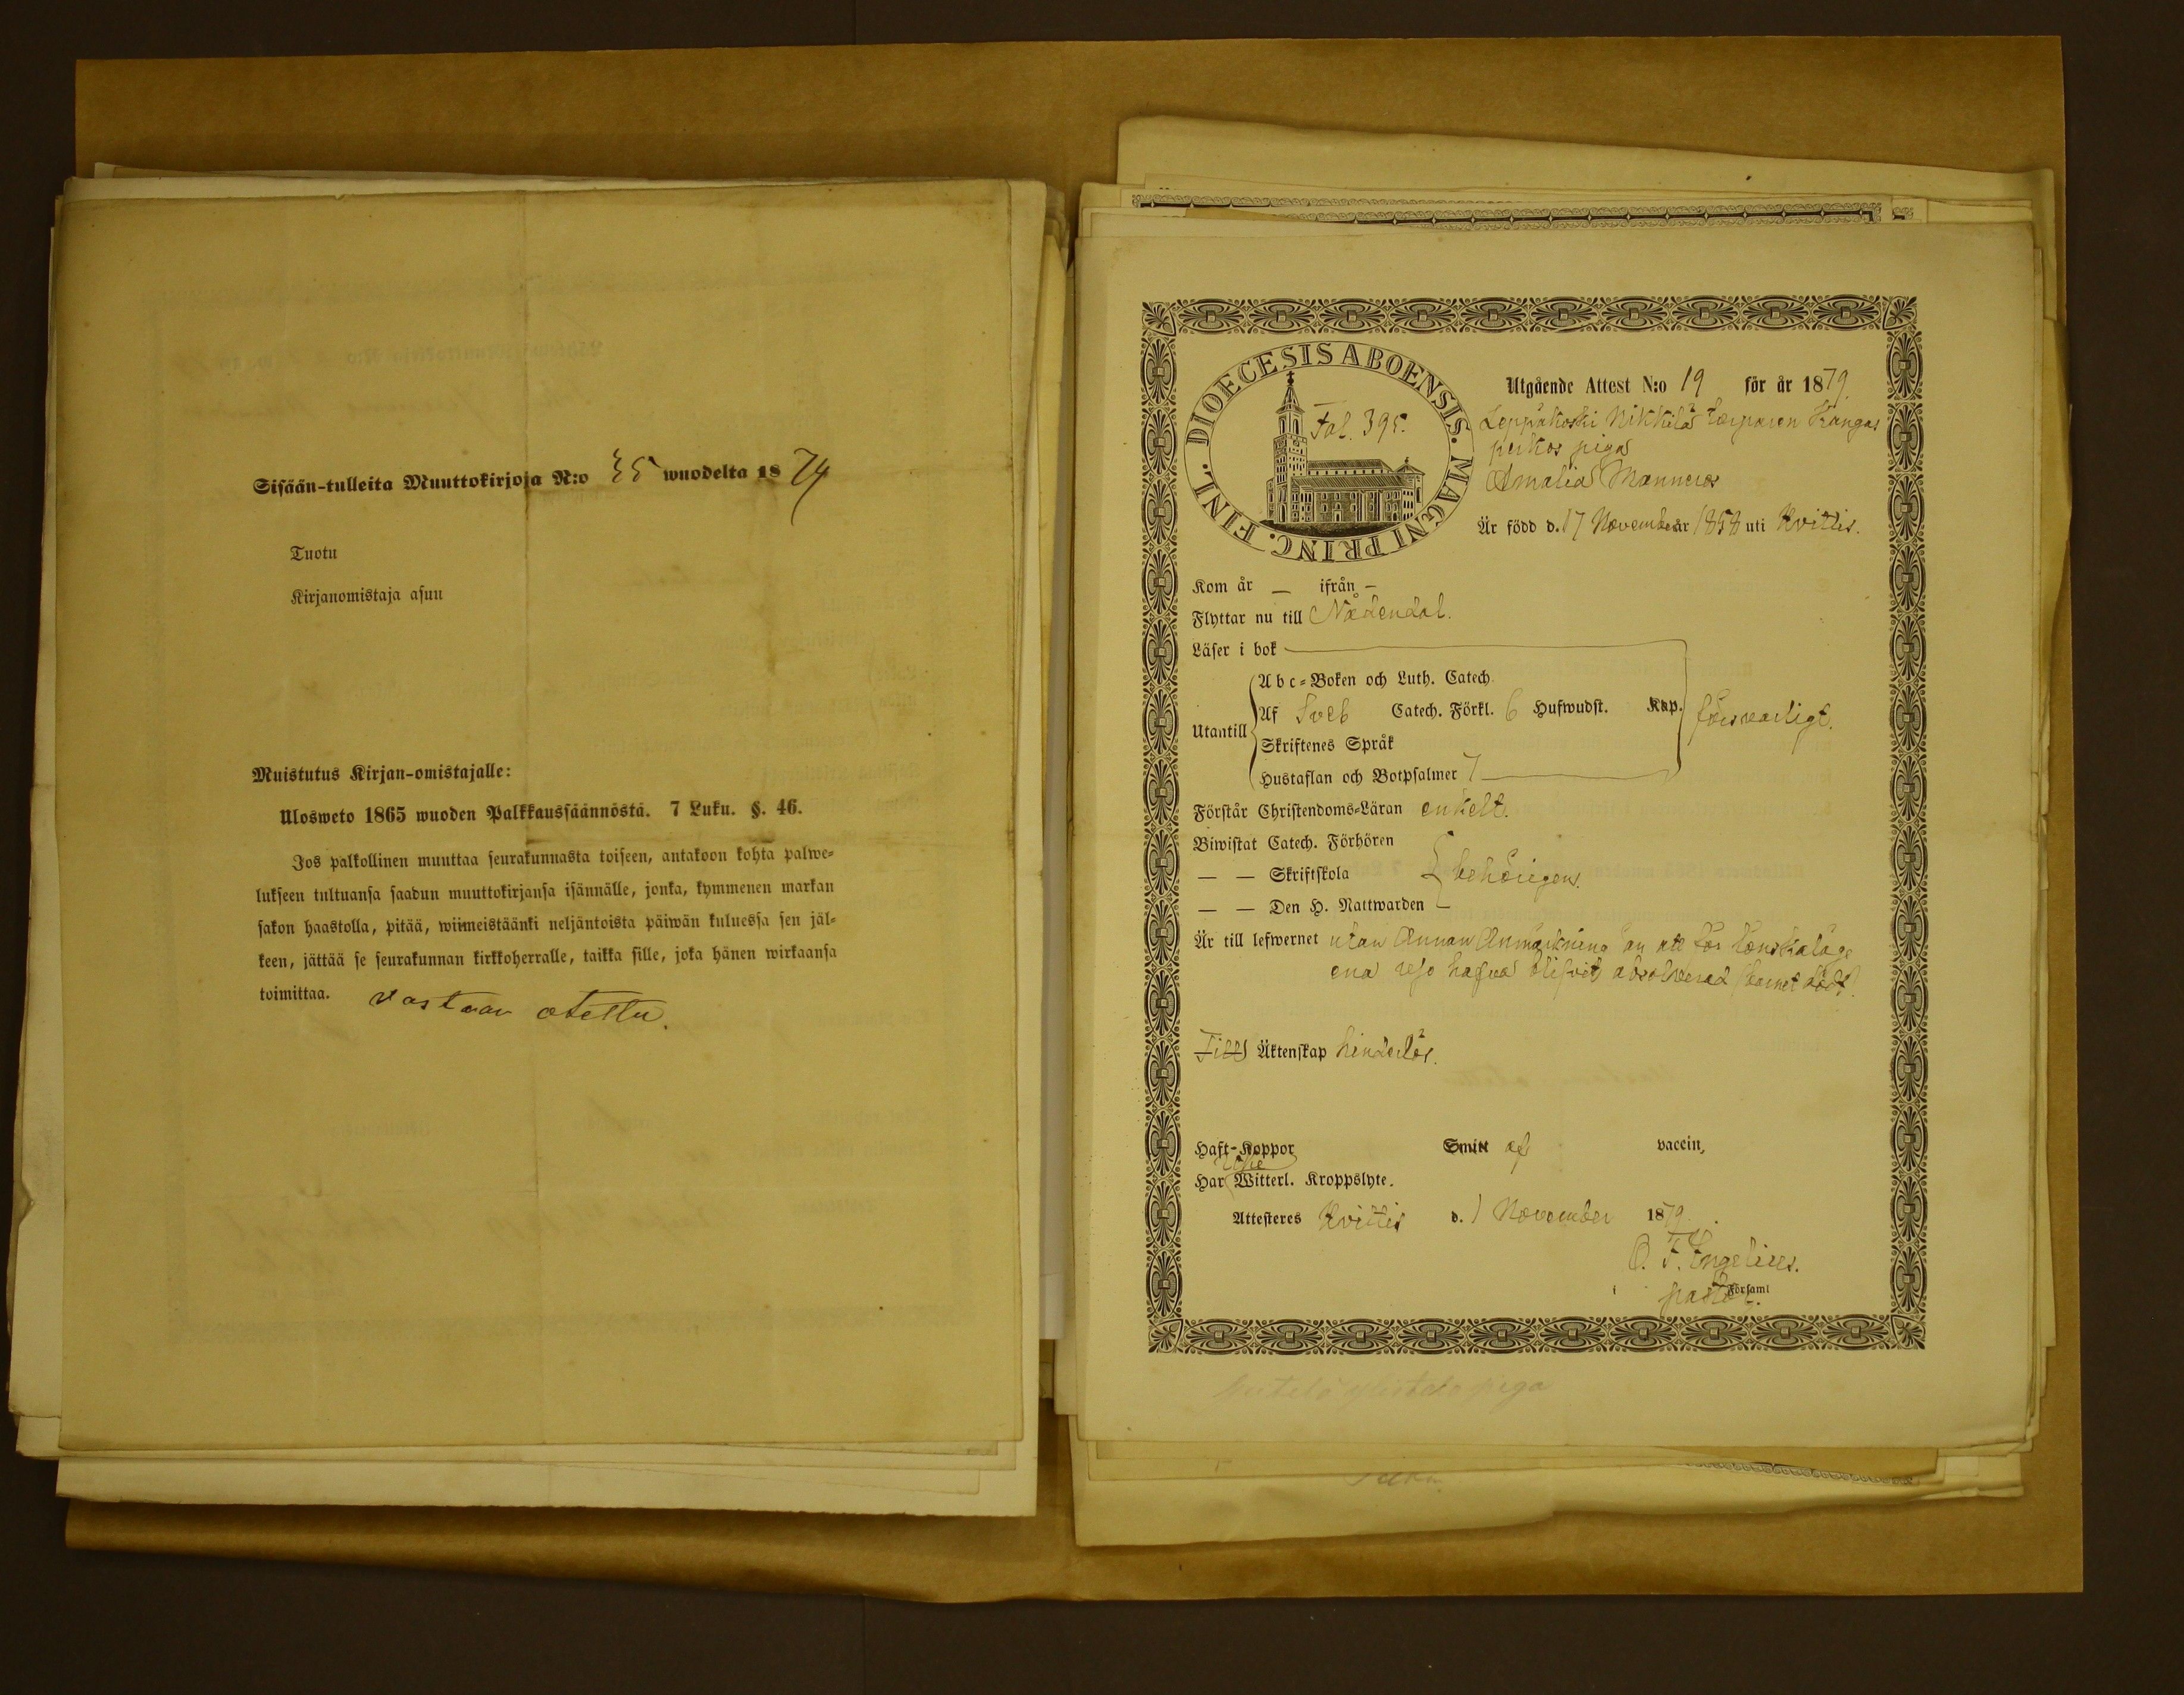 Sisään-tulleita Muuttokirjoja N:o 35 wuodelta 1874
Tuotu
Kirjanomistaja asuu
Muistutus Kirjan-omistajalle:
Ulosweto 1865 wuoden Palkkaussäännöstä. 7 Luku. §. 46.
Jos palkollinen muuttaa seurakunnasta toiseen, antakoon kohta palwe-
lukseen tultuansa saadun muuttokirjansa isännälle, jonka, kymmenen markan
sakon haastolla, pitää, wiimeistäänki neljäntoista päiwän kuluessa sen jäl-
keen, jättää se seurakunnan kirkkoherralle, taikka sille, joka hänen wirkaansa
toimittaa. vastaan otettu.
DIOECESIS ABOENSIS. MAGNI PRINC. FINL.
Fol. 395.
Utgående Attest N:o 19 för år 1879
Leppäkoski Nikkilä torparen Kangas
pigas
Amalia
Är född d. 17 November år 1858 uti Kvittis.
Kom år — ifrån —
Flyttar nu till Nådendal.
Läser i bok
Abc-Boken och Luth. Catech.
Utantill
Af Sveb Catech. Förkl. 6 Hufwudst. Kap. försvarligt.
Skriftenes Språk
Hustaflan och Botpsalmer 7
Förstår Christendoms-Läran enkelt.
Biwistat Catech. Förhören
— — Skriftskola behörigen.
— — Den H. Nattwarden
Är till lefwernet utan Annan Anmärkning än att för lönskaläge
ena reso hafva blifvit absolverad (barnet dödt).
Till Äktenskap hinderlös.
Haft-Koppor Smitt af vaccin,
Har Witterl. Kroppslyte.
Attesteres Kvittis d. 1 November 1879.
O. F. Engelius.
i pastor. Församl
piga